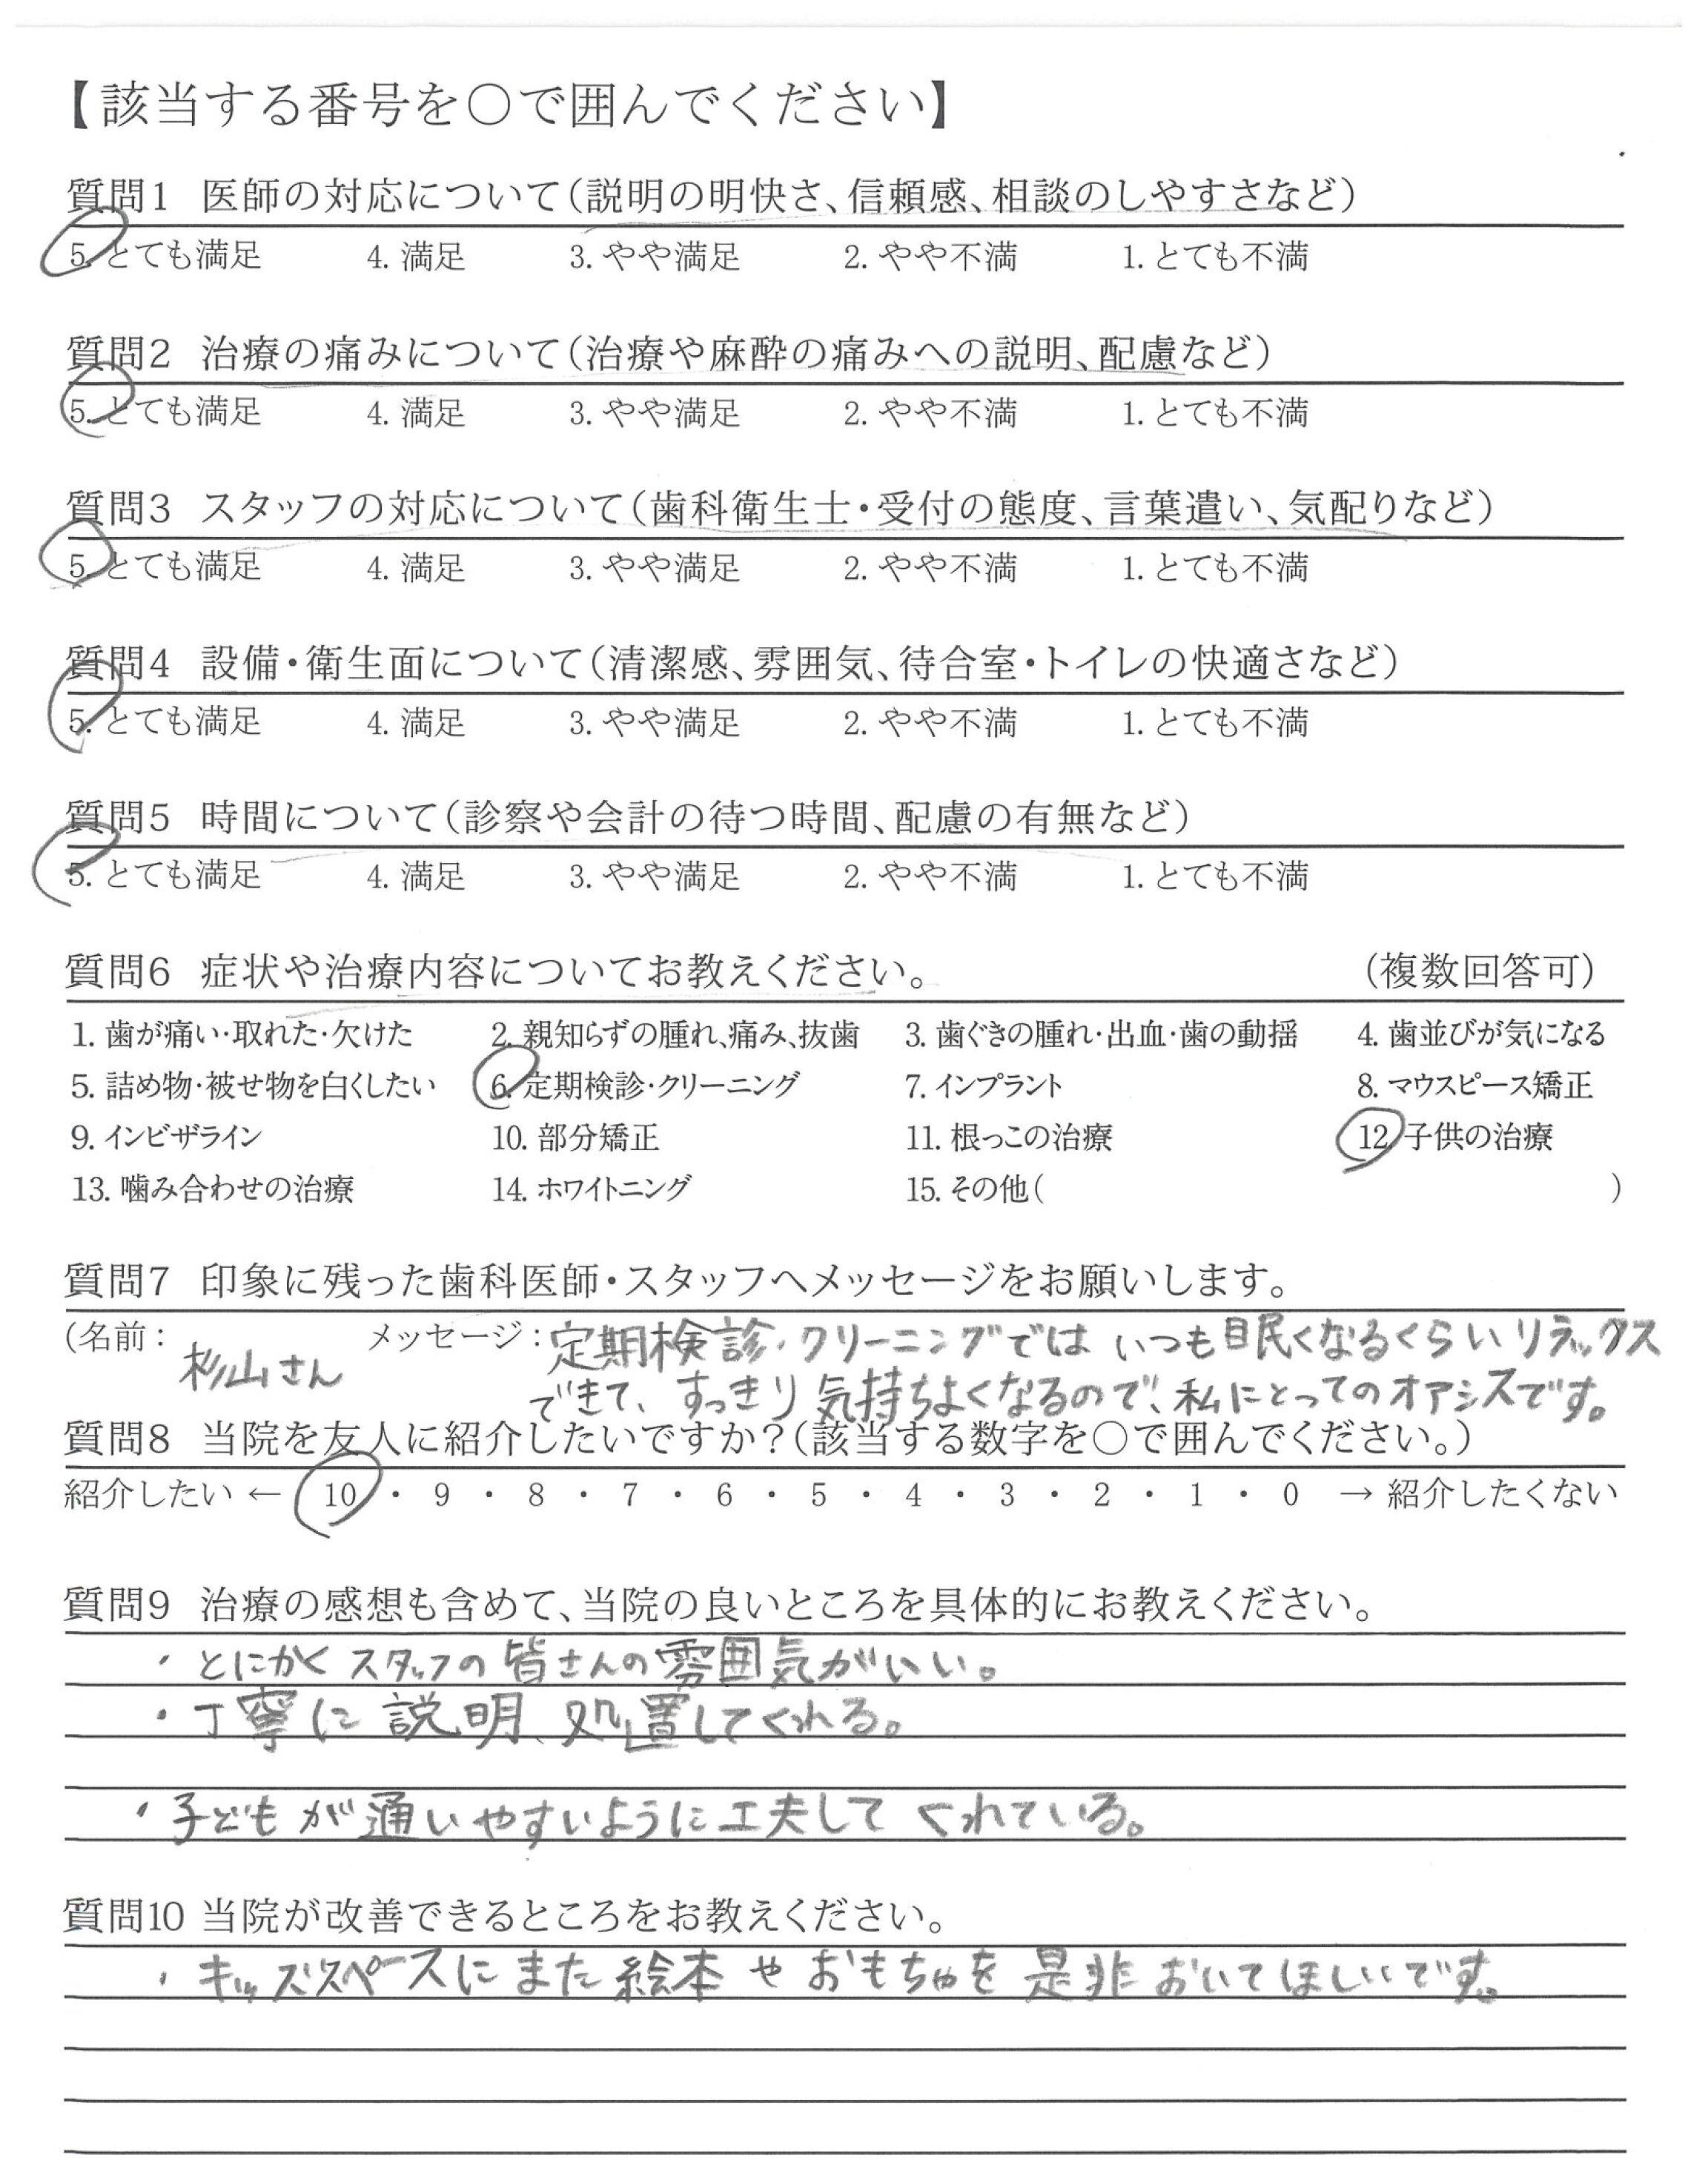 【該当する番号を〇で囲んでください】
質問1 医師の対応について(説明の明快さ、信頼感、相談のしやすさなど)
5. とても満足 4. 満足 3. やや満足 2. やや不満 1. とても不満
質問2 治療の痛みについて(治療や麻酔の痛みへの説明、配慮など)
5. とても満足 4. 満足 3. やや満足 2. やや不満 1. とても不満
質問3 スタッフの対応について(歯科衛生士・受付の態度、言葉遣い、気配りなど)
5. とても満足 4. 満足 3. やや満足 2. やや不満 1. とても不満
質問4 設備・衛生面について(清潔感、雰囲気、待合室・トイレの快適さなど)
5. とても満足 4. 満足 3. やや満足 2. やや不満 1. とても不満
質問5 時間について(診察や会計の待つ時間、配慮の有無など)
5. とても満足 4. 満足 3. やや満足 2. やや不満 1. とても不満
質問6 症状や治療内容についてお教えください。 (複数回答可)
1. 歯が痛い・取れた・欠けた 2. 親知らずの腫れ、痛み、抜歯 3. 歯ぐきの腫れ・出血・歯の動揺 4. 歯並びが気になる
5. 詰め物・被せ物を白くしたい 6. 定期検診・クリーニング 7. インプラント 8. マウスピース矯正
9. インビザライン 10. 部分矯正 11. 根っこの治療 12. 子供の治療
13. 噛み合わせの治療 14. ホワイトニング 15. その他( )
質問7 印象に残った歯科医師・スタッフへメッセージをお願いします。
(名前: メッセージ: 定期検診・クリーニングでは いつも眠くなるくらいリラックス
杉山さん できて、すっきり気持ちよくなるので、私にとってのオアシスです。
質問8 当院を友人に紹介したいですか?(該当する数字を〇で囲んでください。)
紹介したい ← 10 ・ 9 ・ 8 ・ 7 ・ 6 ・ 5 ・ 4 ・ 3 ・ 2 ・ 1 ・ 0 → 紹介したくない
質問9 治療の感想も含めて、当院の良いところを具体的にお教えください。
・とにかくスタッフの皆さんの雰囲気がいい。
・丁寧に説明、処置してくれる。
・子どもが通いやすいように工夫してくれている。
質問10 当院が改善できるところをお教えください。
・キッズスペースにまた絵本やおもちゃを是非おいてほしいです。